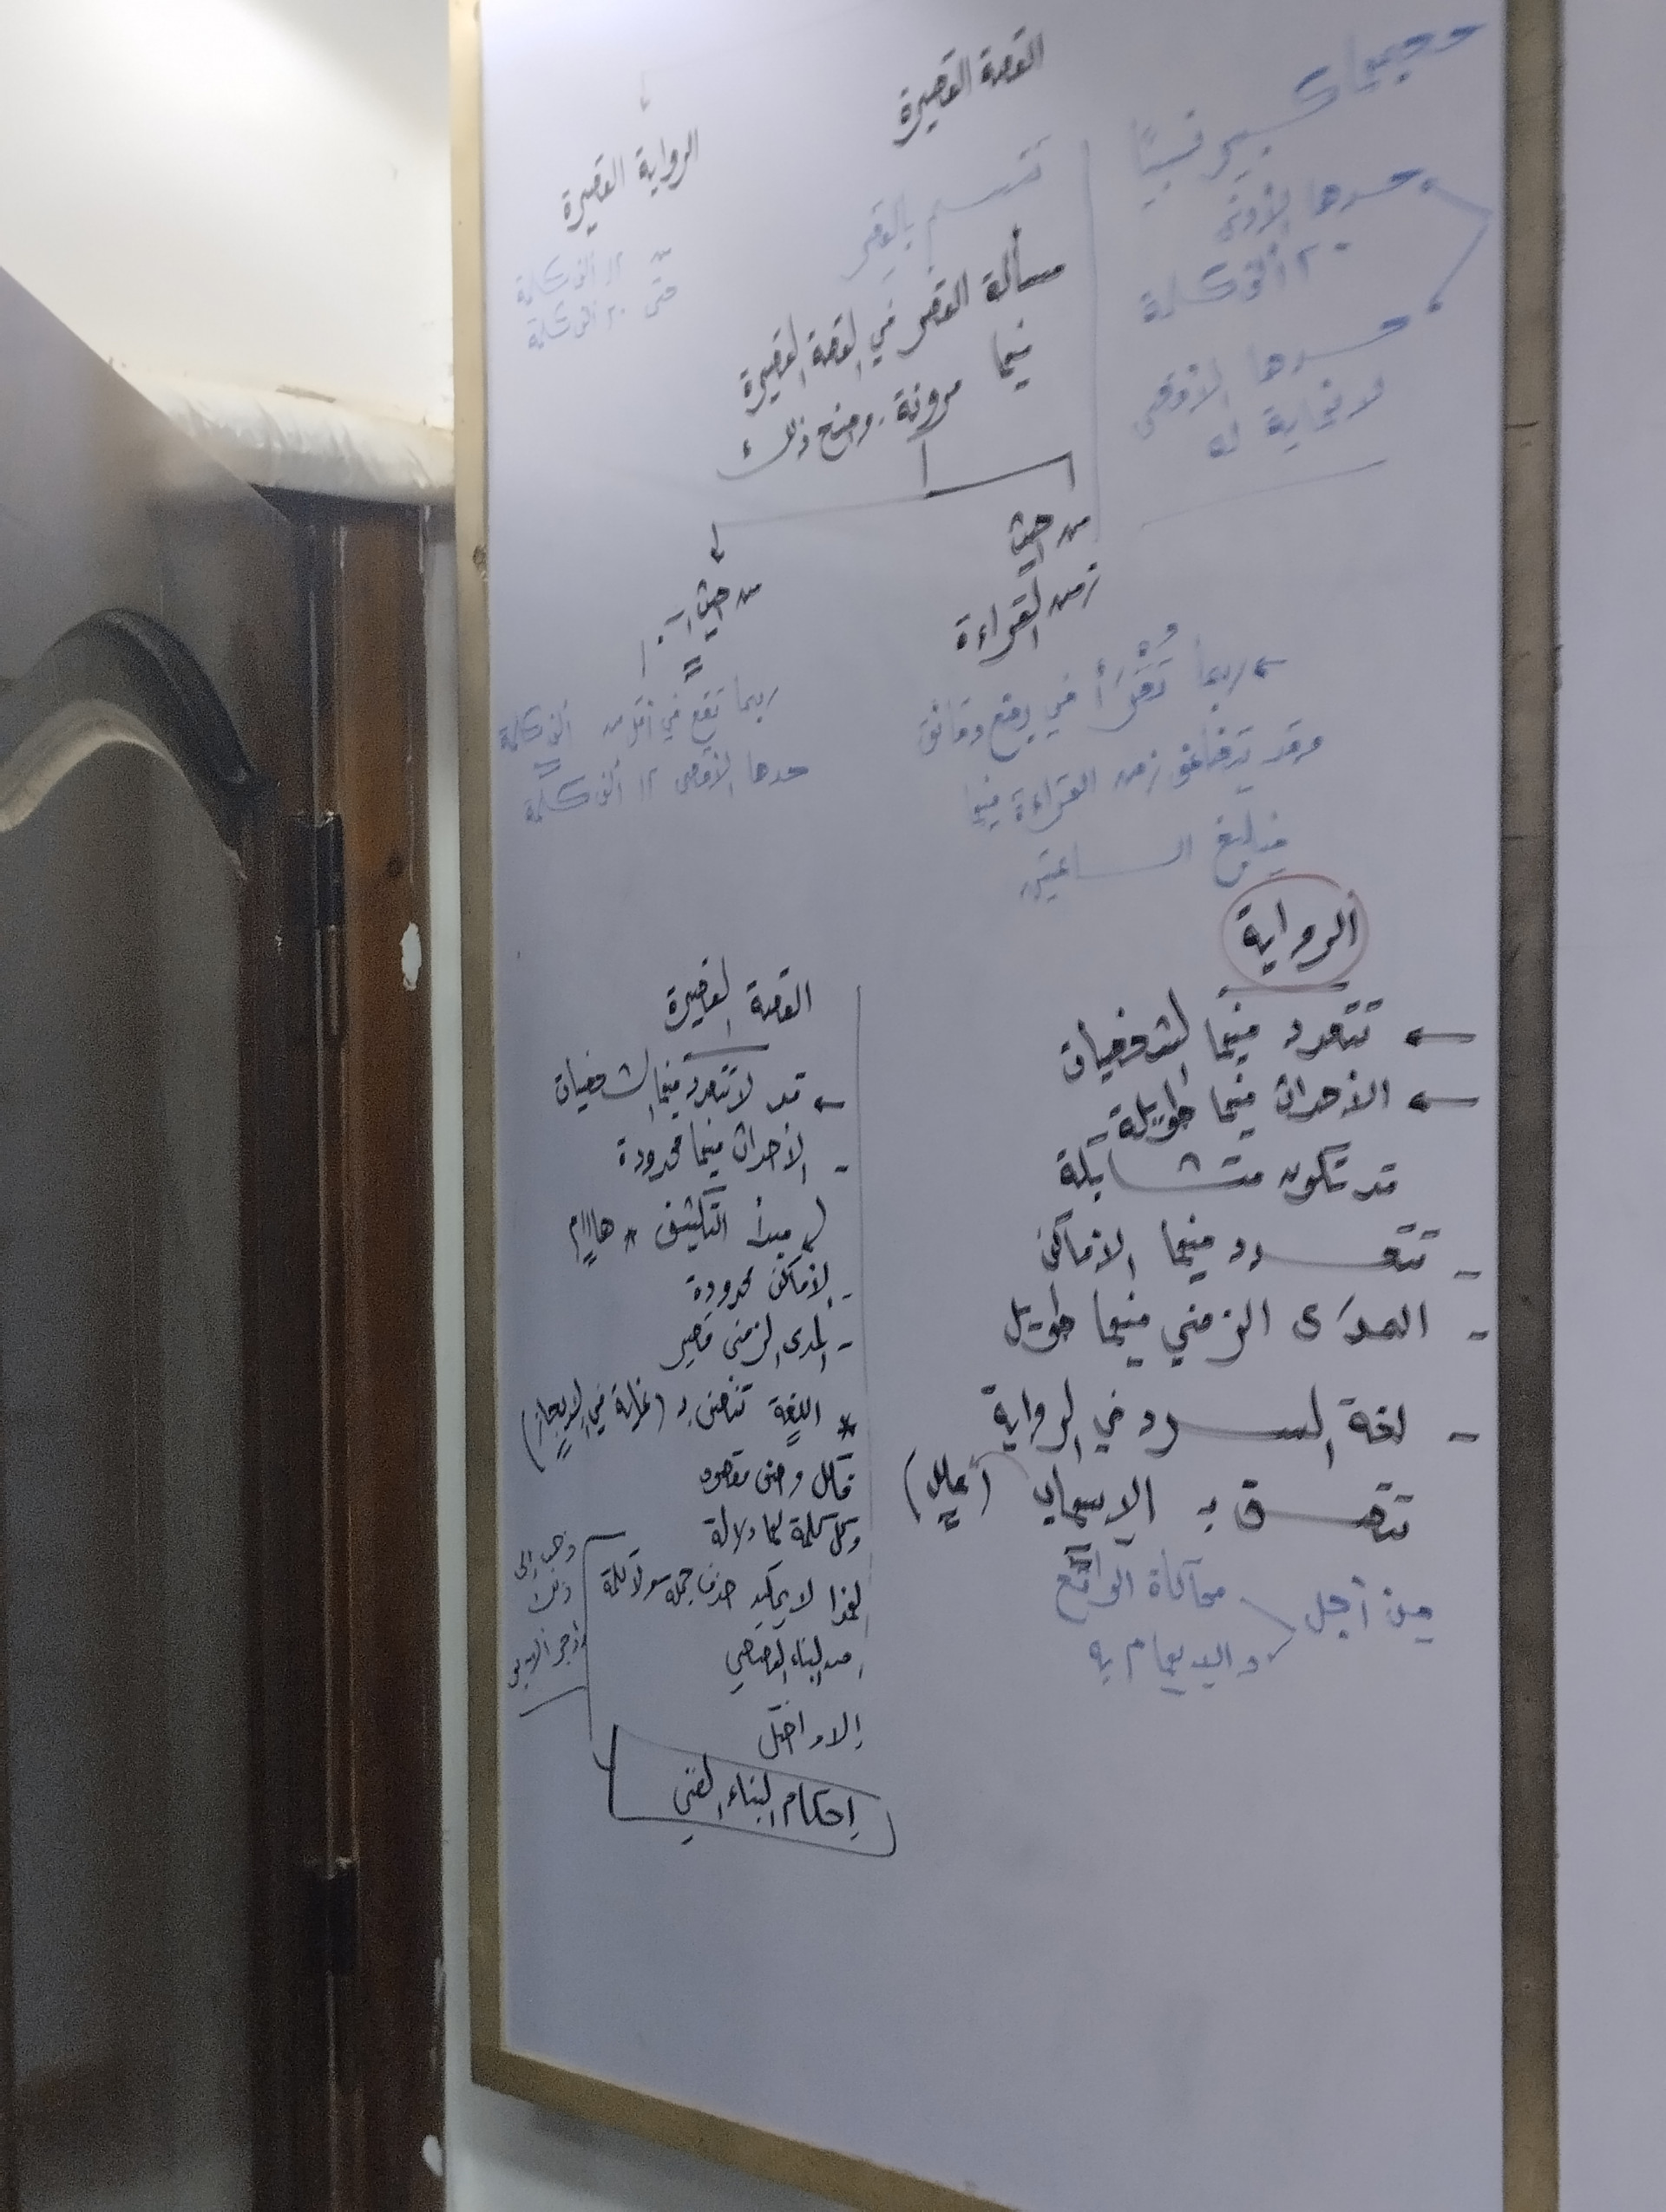 حجمها كبير نسبيًا
حدها الأدنى
٢٠ ألف كلمة
حدها الأقصى
لا نهاية له
القصة القصيرة
تتسم بالقصر
مسألة القصر في القصة القصيرة
فيها مرونة. وضح ذلك
من حيث
زمن القراءة
ربما تُقْرَأُ في بضع دقائق
وقد يتضاعف زمن القراءة فيها
فيبلغ الساعتين
من حيث
ربما تقع في أقل من ألف كلمة
حدها الأقصى ١٢ ألف كلمة
الرواية القصيرة
من ١٢ ألف كلمة
حتى ٢٠ ألف كلمة
الرواية
تتعدد فيها الشخصيات
الأحداث فيها طويلة
قد تكون متشابكة
- تتعدد فيها الأماكن
- المدَى الزمني فيها طويل
- لغة السرد في الرواية
تتصف بـ الإسهاب
من أجل
محاكاة الواقع
والإيهام به
القصة القصيرة
قد لا تتعدد فيها الشخصيات
- الأحداث فيها محدودة
مبدأ التكثيف * هااام
- الأماكن محدودة
- المدى الزمني قصير
* اللغة تتصف بـ (غاية في الإيجاز)
وكل كلمة لها دلالة
لهذا لا يمكن حذف جملة ولا كلمة
من البناء القصصي
إلا واختل
إحكام البناء الفني
ذهب إلى
ذلك
إدجار ألان بو